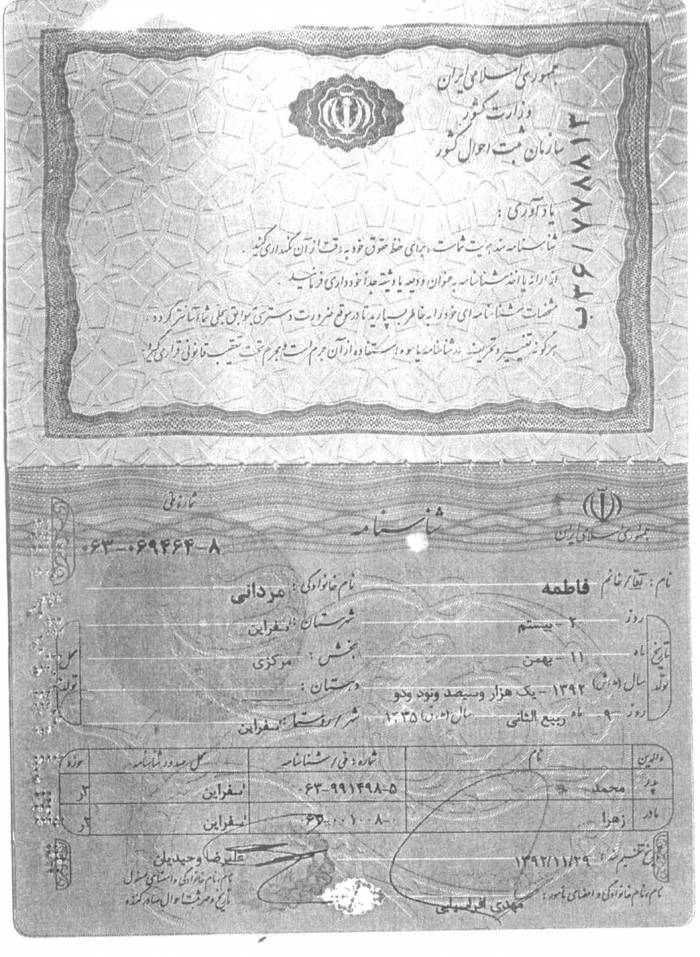 جمهوری اسلامی ایران
وزارت کشور
سازمان ثبت احوال کشور
ب۳۶/۷۷۸۸۱۳
یادآوری :
شناسنامه سند هویت شماست ، برای حفظ حقوق خود به دقت از آن نگهداری کنید .
از ارائه یا اخذ شناسنامه به عنوان ودیعه یا وثیقه جداً خودداری فرمائید .
مشخصات شناسنامه ای خود را به خاطر بسپارید تا در موقع ضرورت دسترسی به سوابق سجلی شما آسانتر گردد .
هرگونه تغییر و تحریف در شناسنامه یا سوء استفاده از آن جرم است و مجرم تحت تعقیب قانونی قرار می گیرد.
جمهوری اسلامی ایران
شناسنامه
شماره ملی
۰۶۳-۰۶۹۴۶۴-۸
نام : آقا / خانم فاطمه نام خانوادگی : مردانی
تاریخ تولد
روز ۲۰ - بیستم
ماه ۱۱ - بهمن
سال (ه.ش) ۱۳۹۲ - یک هزار وسیصد ونود ودو
روز ۹ ماه ربیع الثانی سال (ه.ق) ۱۴۳۵
محل تولد
شهرستان : اسفراین
بخش : مرکزی
دهستان :
شهر / روستا : اسفراین
والدین نام شماره : ملی / شناسنامه محل صدور شناسنامه حوزه
پدر محمد ۰۶۳-۹۹۱۴۹۸-۵ اسفراین
مادر زهرا اسفراین
تاریخ تنظیم سند : ۱۳۹۲/۱۱/۲۹ علیرضا وحیدیان
نام ، نام خانوادگی و امضای مسئول
نام ، نام خانوادگی و امضای مأمور : مهدی افراسیابی
تاریخ و مهر ثبت احوال صادر کننده